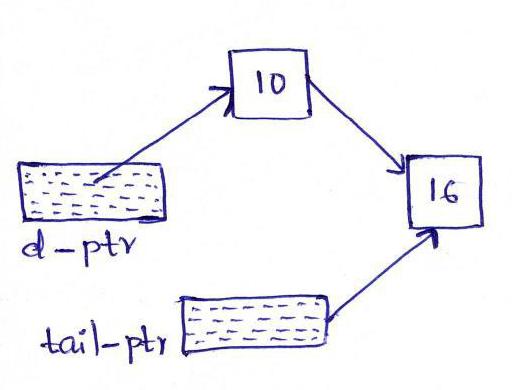 10
16
d-ptr
tail-ptr